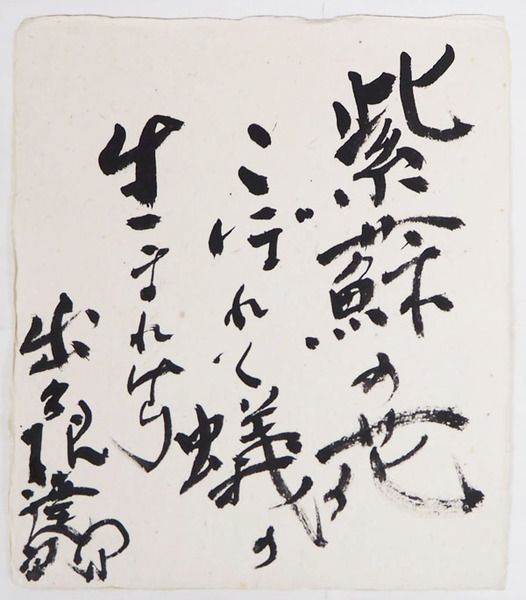 紫蘇の花
こぼれて蟻の
生まれけり
出久根達郎